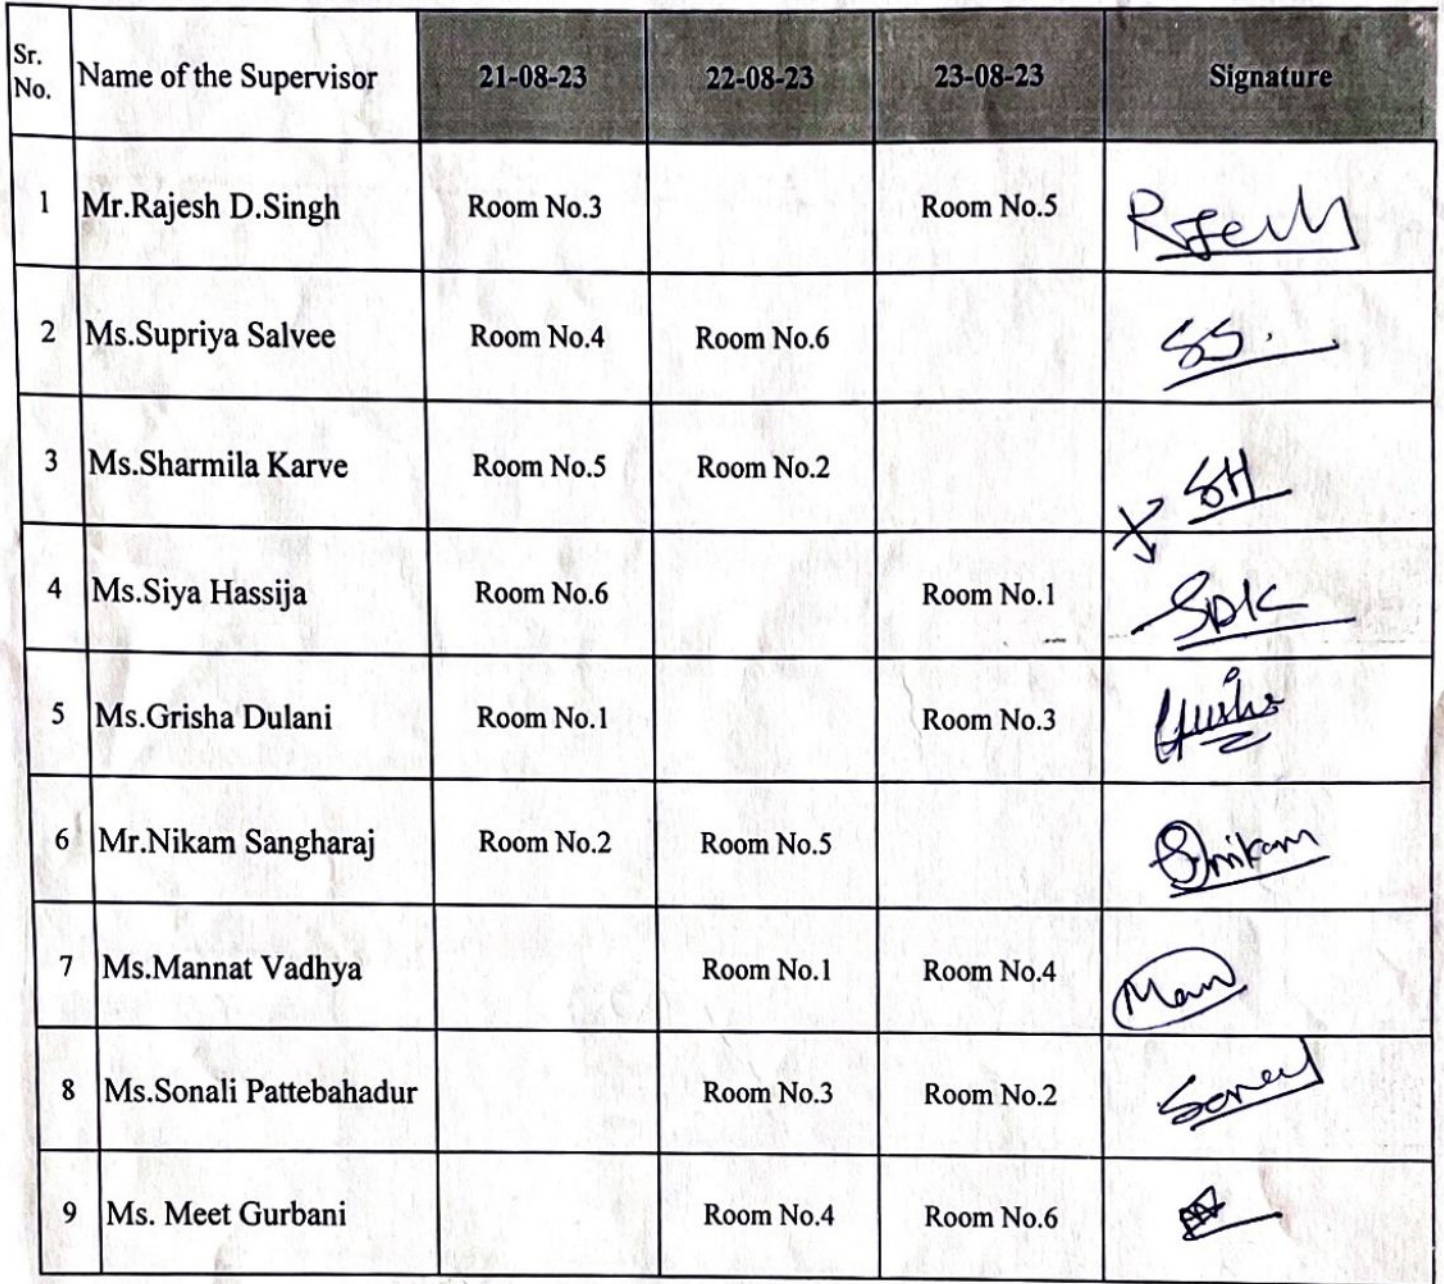 Sr. No. Name of the Supervisor 21-08-23 22-08-23 23-08-23 Signature
1 Mr.Rajesh D.Singh Room No.3 Room No.5
2 Ms.Supriya Salvee Room No.4 Room No.6 SS.
3 Ms.Sharmila Karve Room No.5 Room No.2 SH
4 Ms.Siya Hassija Room No.6 Room No.1 SDK
5 Ms.Grisha Dulani Room No.1 Room No.3
6 Mr.Nikam Sangharaj Room No.2 Room No.5 Snikam
7 Ms.Mannat Vadhya Room No.1 Room No.4
8 Ms.Sonali Pattebahadur Room No.3 Room No.2
9 Ms. Meet Gurbani Room No.4 Room No.6